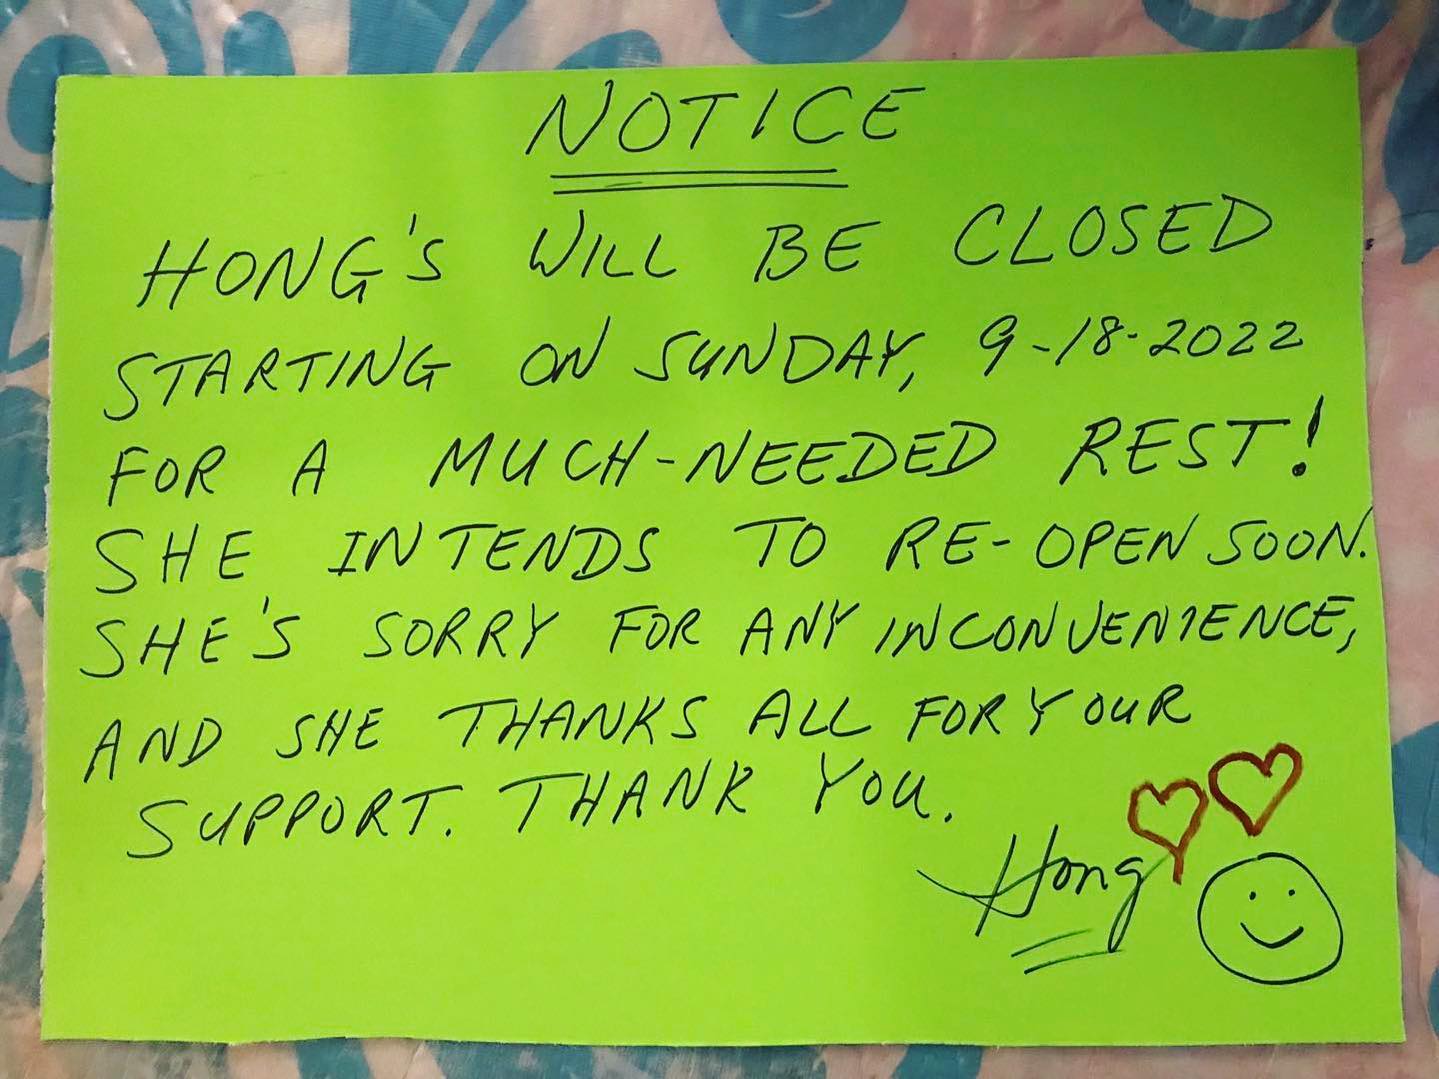 NOTICE
HONG'S WILL BE CLOSED
STARTING ON SUNDAY, 9-18-2022
FOR A MUCH-NEEDED REST!
SHE INTENDS TO RE-OPEN SOON.
SHE'S SORRY FOR ANY INCONVENIENCE,
AND SHE THANKS ALL FOR YOUR
SUPPORT. THANK YOU.
Hong